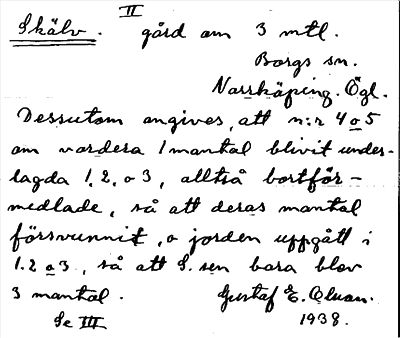 II
Skälv. gård om 3 mtl.
Borgs sn.
Norrköping. Ögl.
Dessutom angives, att n:r 4 o 5
om vardera 1 mantal blivit under-
lagda 1, 2, o 3, alltså bortför-
medlade, så att deras mantal
försvunnit, o jorden uppgått i
1. 2 o 3, så att S. sen bara blev
3 mantal. Gustaf E. Olson.
Se III 1938.